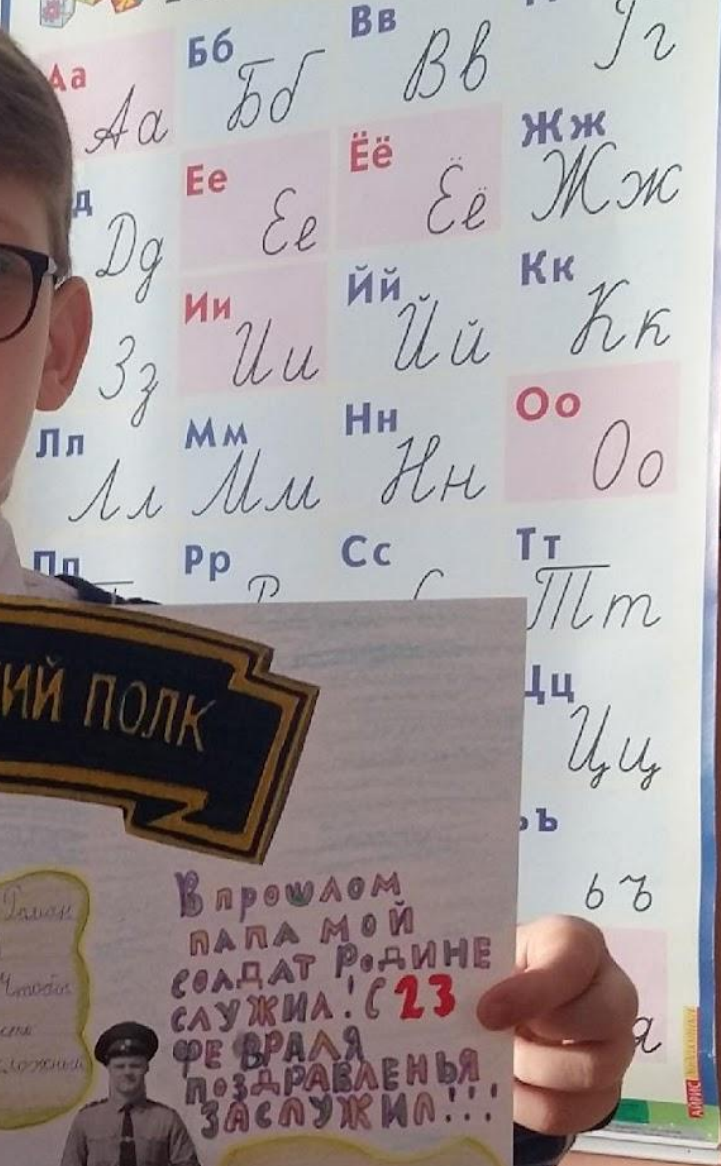 Аа Аа
Бб Бб
Вв Вв
Гг
д Дд
Ее Ее
Ёё Ёё
Жж Жж
Зз
Ии Ии
Йй Йй
Кк Кк
Лл Лл
Мм Мм
Нн Нн
Оо Оо
Пп
Рр Р
Сс С
Тт Тт
Цц Цц
ьЪ ьЪ
я
ИЙ ПОЛК
Роман
Чтобы
В прошлом
папа мой
солдат Родине
служил! С 23
февраля
поздравленья
заслужил!!!
АЙРИС